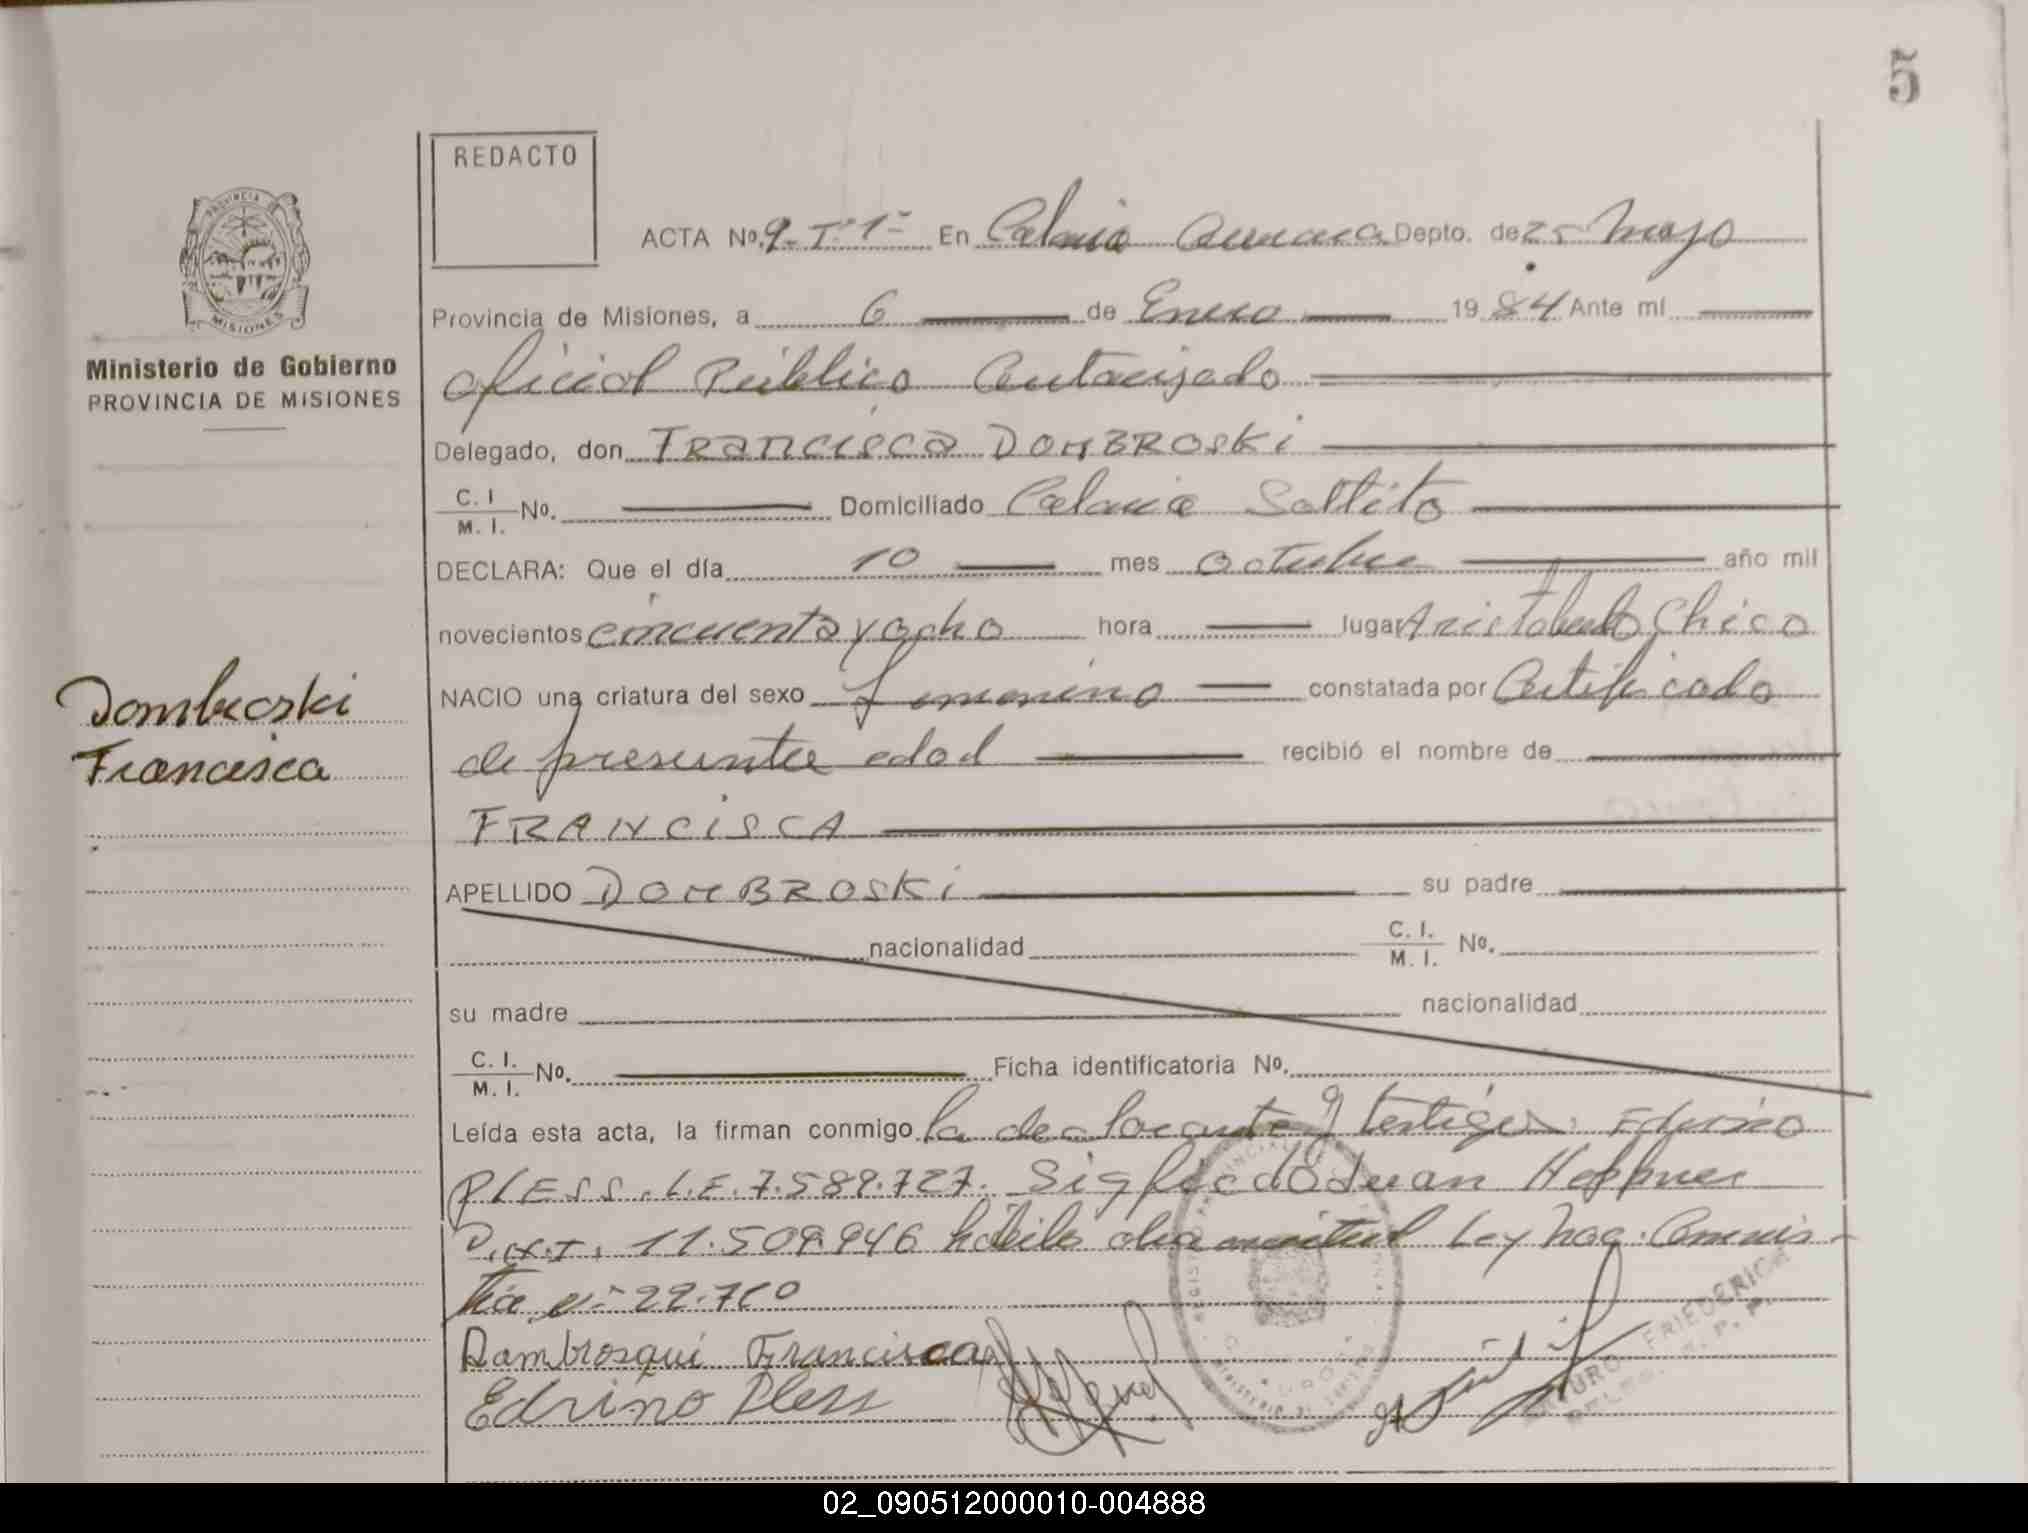 5
REDACTO
ACTA Nº. 9-Tº 1º En Colonia Aurora Depto. de 25 Mayo
Provincia de Misiones, a 6 de Enero 1984 Ante mí
PROVINCIA DE
MISIONES
Ministerio de Gobierno
PROVINCIA DE MISIONES
Oficial Público Autorizado
Delegado, don FRANCISCA DOMBROSKI
C. I
M. I. Nº. Domiciliado Colonia Saltito
DECLARA: Que el día 10 mes octubre año mil
novecientos cincuenta y ocho hora lugar Aristobulo Chico
Dombroski
Francisca
NACIO una criatura del sexo femenino constatada por Certificado
de presunta edad recibió el nombre de
FRANCISCA
APELLIDO DOMBROSKI su padre
nacionalidad C. I. M. I. Nº.
su madre nacionalidad
C. I.
M. I. Nº. Ficha identificatoria Nº.
Leída esta acta, la firman conmigo la declarante y testigos: Edvino
PLESS. L.E. 7.589.727. Sigfredo Juan Heppner
D.N.I. 11.509.946 Ley Nac. Amnis-
tia nº 22.710
Dambrosqui Francisca
Edvino Pless
ARTURO FRIEDERICH
02_090512000010-004888